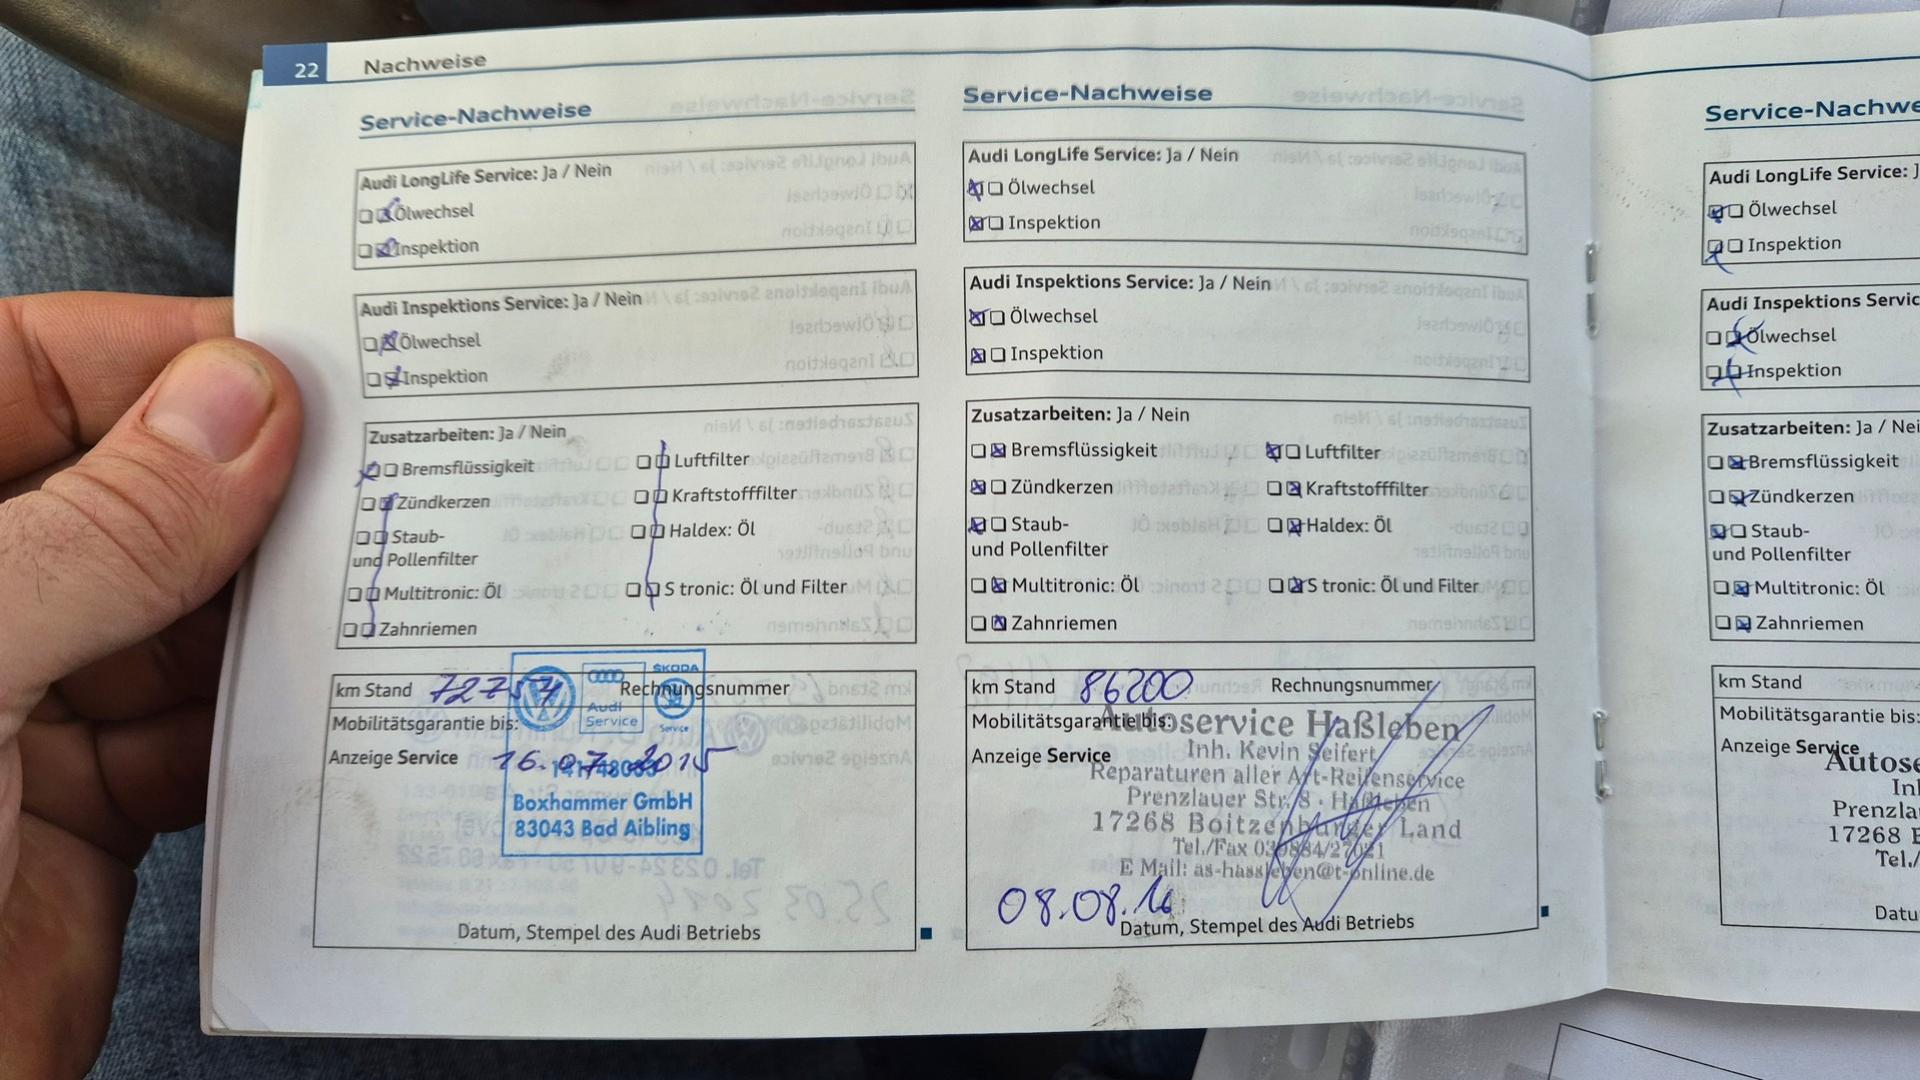 22 Nachweise
Service-Nachweise
Audi LongLife Service: Ja / Nein
Ölwechsel
Inspektion
Audi Inspektions Service: Ja / Nein
Ölwechsel
Inspektion
Zusatzarbeiten: Ja / Nein
Bremsflüssigkeit Luftfilter
Zündkerzen Kraftstofffilter
Staub- Haldex: Öl
und Pollenfilter
Multitronic: Öl S tronic: Öl und Filter
Zahnriemen
km Stand 72757 Rechnungsnummer
Mobilitätsgarantie bis:
Anzeige Service 16.07.2015
Audi
Service
ŠKODA
Service
Boxhammer GmbH
83043 Bad Aibling
Datum, Stempel des Audi Betriebs
Service-Nachweise
Audi LongLife Service: Ja / Nein
Ölwechsel
Inspektion
Audi Inspektions Service: Ja / Nein
Ölwechsel
Inspektion
Zusatzarbeiten: Ja / Nein
Bremsflüssigkeit Luftfilter
Zündkerzen Kraftstofffilter
Staub- Haldex: Öl
und Pollenfilter
Multitronic: Öl S tronic: Öl und Filter
Zahnriemen
km Stand 86200 Rechnungsnummer
Mobilitätsgarantie bis:
Autoservice Haßleben
Anzeige Service
Inh. Kevin Seifert
Reparaturen aller Art-Reifenservice
Prenzlauer Str. 8 · Haßleben
17268 Boitzenburger Land
Tel./Fax 039884/27021
E Mail: as-hassleben@t-online.de
08.08.16
Datum, Stempel des Audi Betriebs
Service-Nachwe
Audi LongLife Service: J
Ölwechsel
Inspektion
Audi Inspektions Servic
Ölwechsel
Inspektion
Zusatzarbeiten: Ja / Nei
Bremsflüssigkeit
Zündkerzen
Staub-
und Pollenfilter
Multitronic: Öl
Zahnriemen
km Stand
Mobilitätsgarantie bis:
Anzeige Service
Autose
Inl
Prenzla
17268 B
Tel./
Datu